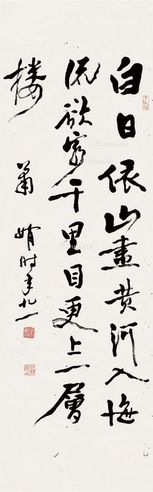 白日依山盡黄河入海
流欲窮千里目更上一層
楼
蕭娴时年九一